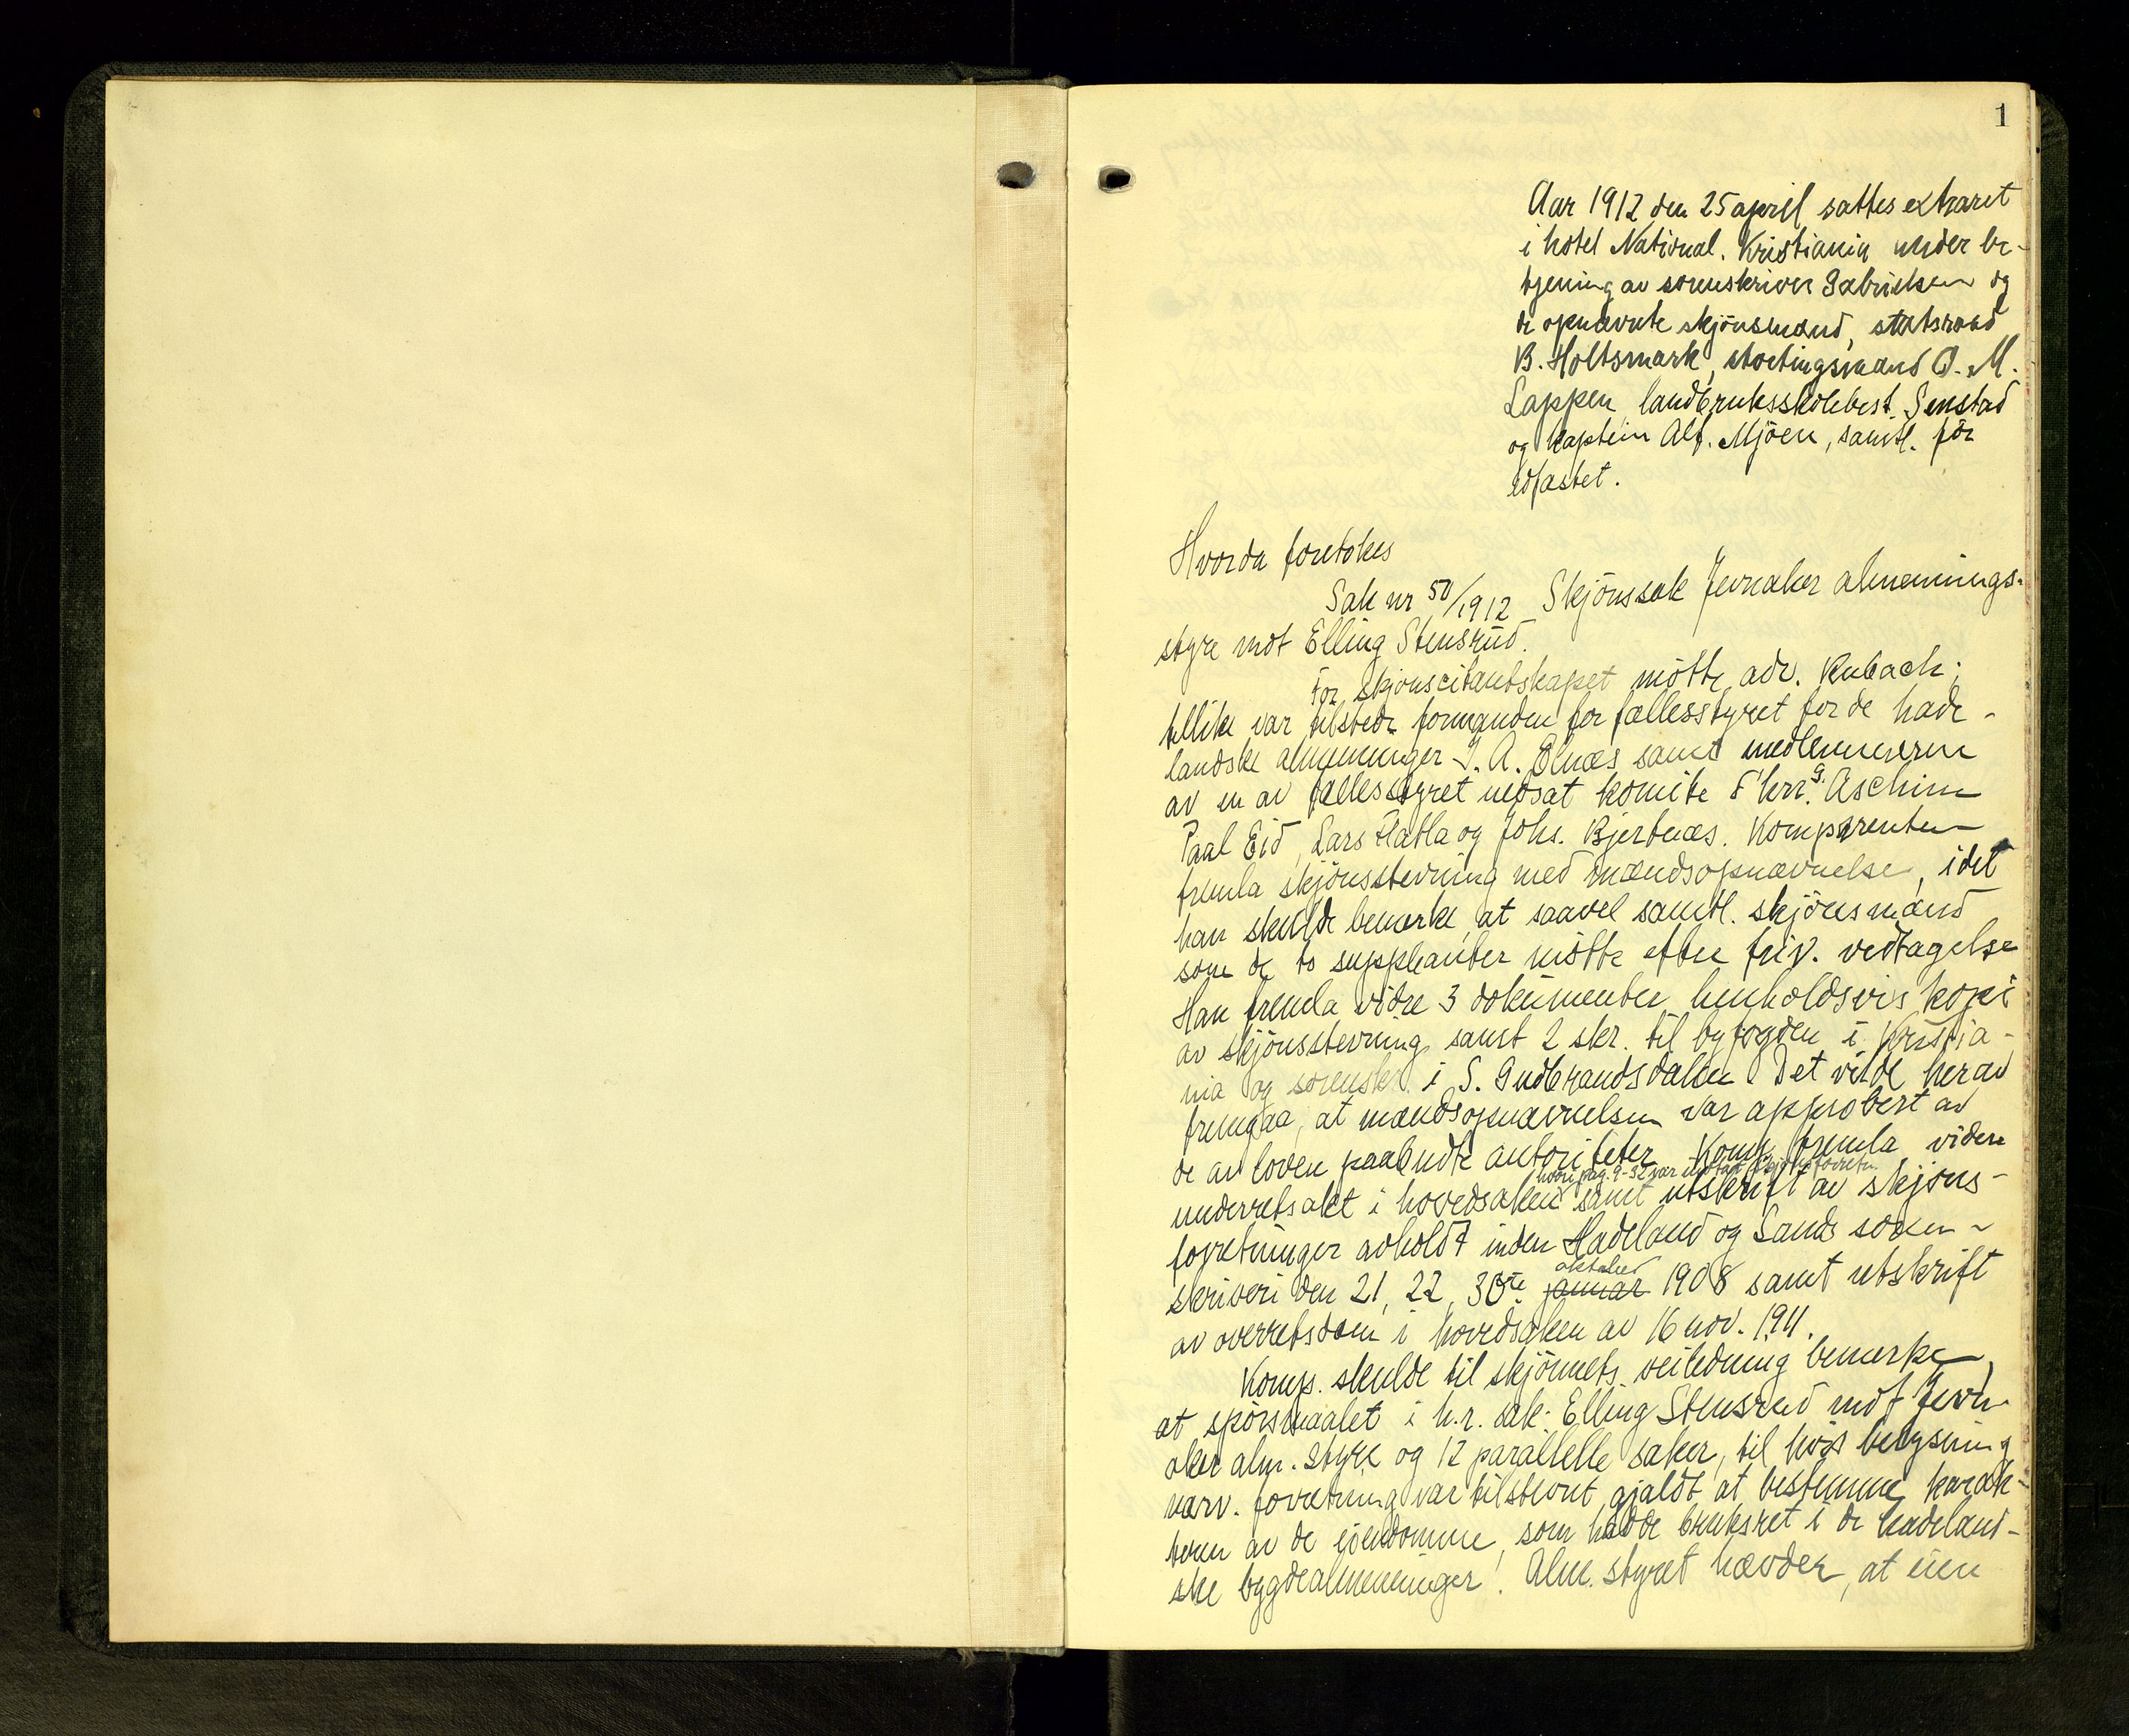 1
Aar 1912 den 25 april sattes extraret
i hotel National. Kristiania under be-
tjening av sorenskriver Gabrielsen og
de opnævnte skjönsmænd, statsraad
B. Holtsmark, stortingsmand O. M.
Lappen, landbruksskolebest. Senstad
og kaptein Alf. Mjöen, samtl. för
edfæstet.
Hvorda foretokes
Sak nr 50/1912 Skjönssak Jevnaker almennings-
styre mot Elling Stensrud.
For skjönscitantskapet mötte adv. Rubach;
tillike var tilstede formanden for fællesstyret for de hade-
landske almenninger I. A. Elnæs samt medlemmerne
av en av fællesstyret nedsat komite d'hrr. G. Aschim
Paal Eid, Lars Flatla og Johs. Bjertnæs. Komparenten
fremla skjönsstevning med mændsopnævnelse, idet
han skulde bemærke, at saavel samtl. skjönsmænd
som de to suppleanter mötte efter friv. vedtagelse
Han fremla vidre 3 dokumenter henholdsvis kopi
av skjönsstevning samt 2 skr. til byfogden i Kristia-
nia og sorenskr. i S. Gudbrandsdalen. Det vilde herav
fremgaa, at mændsopnævnelsen var approbert av
de av loven paabudte autoriteter. Komp. fremla videre
hvori pag. 9-32 var indtat skjönsforretn.
underretsakt i hovedsaken samt utskrift av skjöns-
forretninger avholdt inden Hadeland og Lands soren-
oktober
skriveri den 21, 22, 30te januar 1908 samt utskrift
av overretsdom i hovedsaken av 16 nov. 1911.
Komp. skulde til skjönnets veiledning bemerke,
at spörsmaalet i h.r. sak: Elling Stensrud mot Jevn-
aker alm. styre og 12 parallelle saker, til hvis belysning
nærv. forretning var tilstevnt, gjaldt at bestemme karak-
teren av de eiendomme, som hadde bruksret i de hadeland-
ske bygdealmenninger. Alm. styret hævder, at